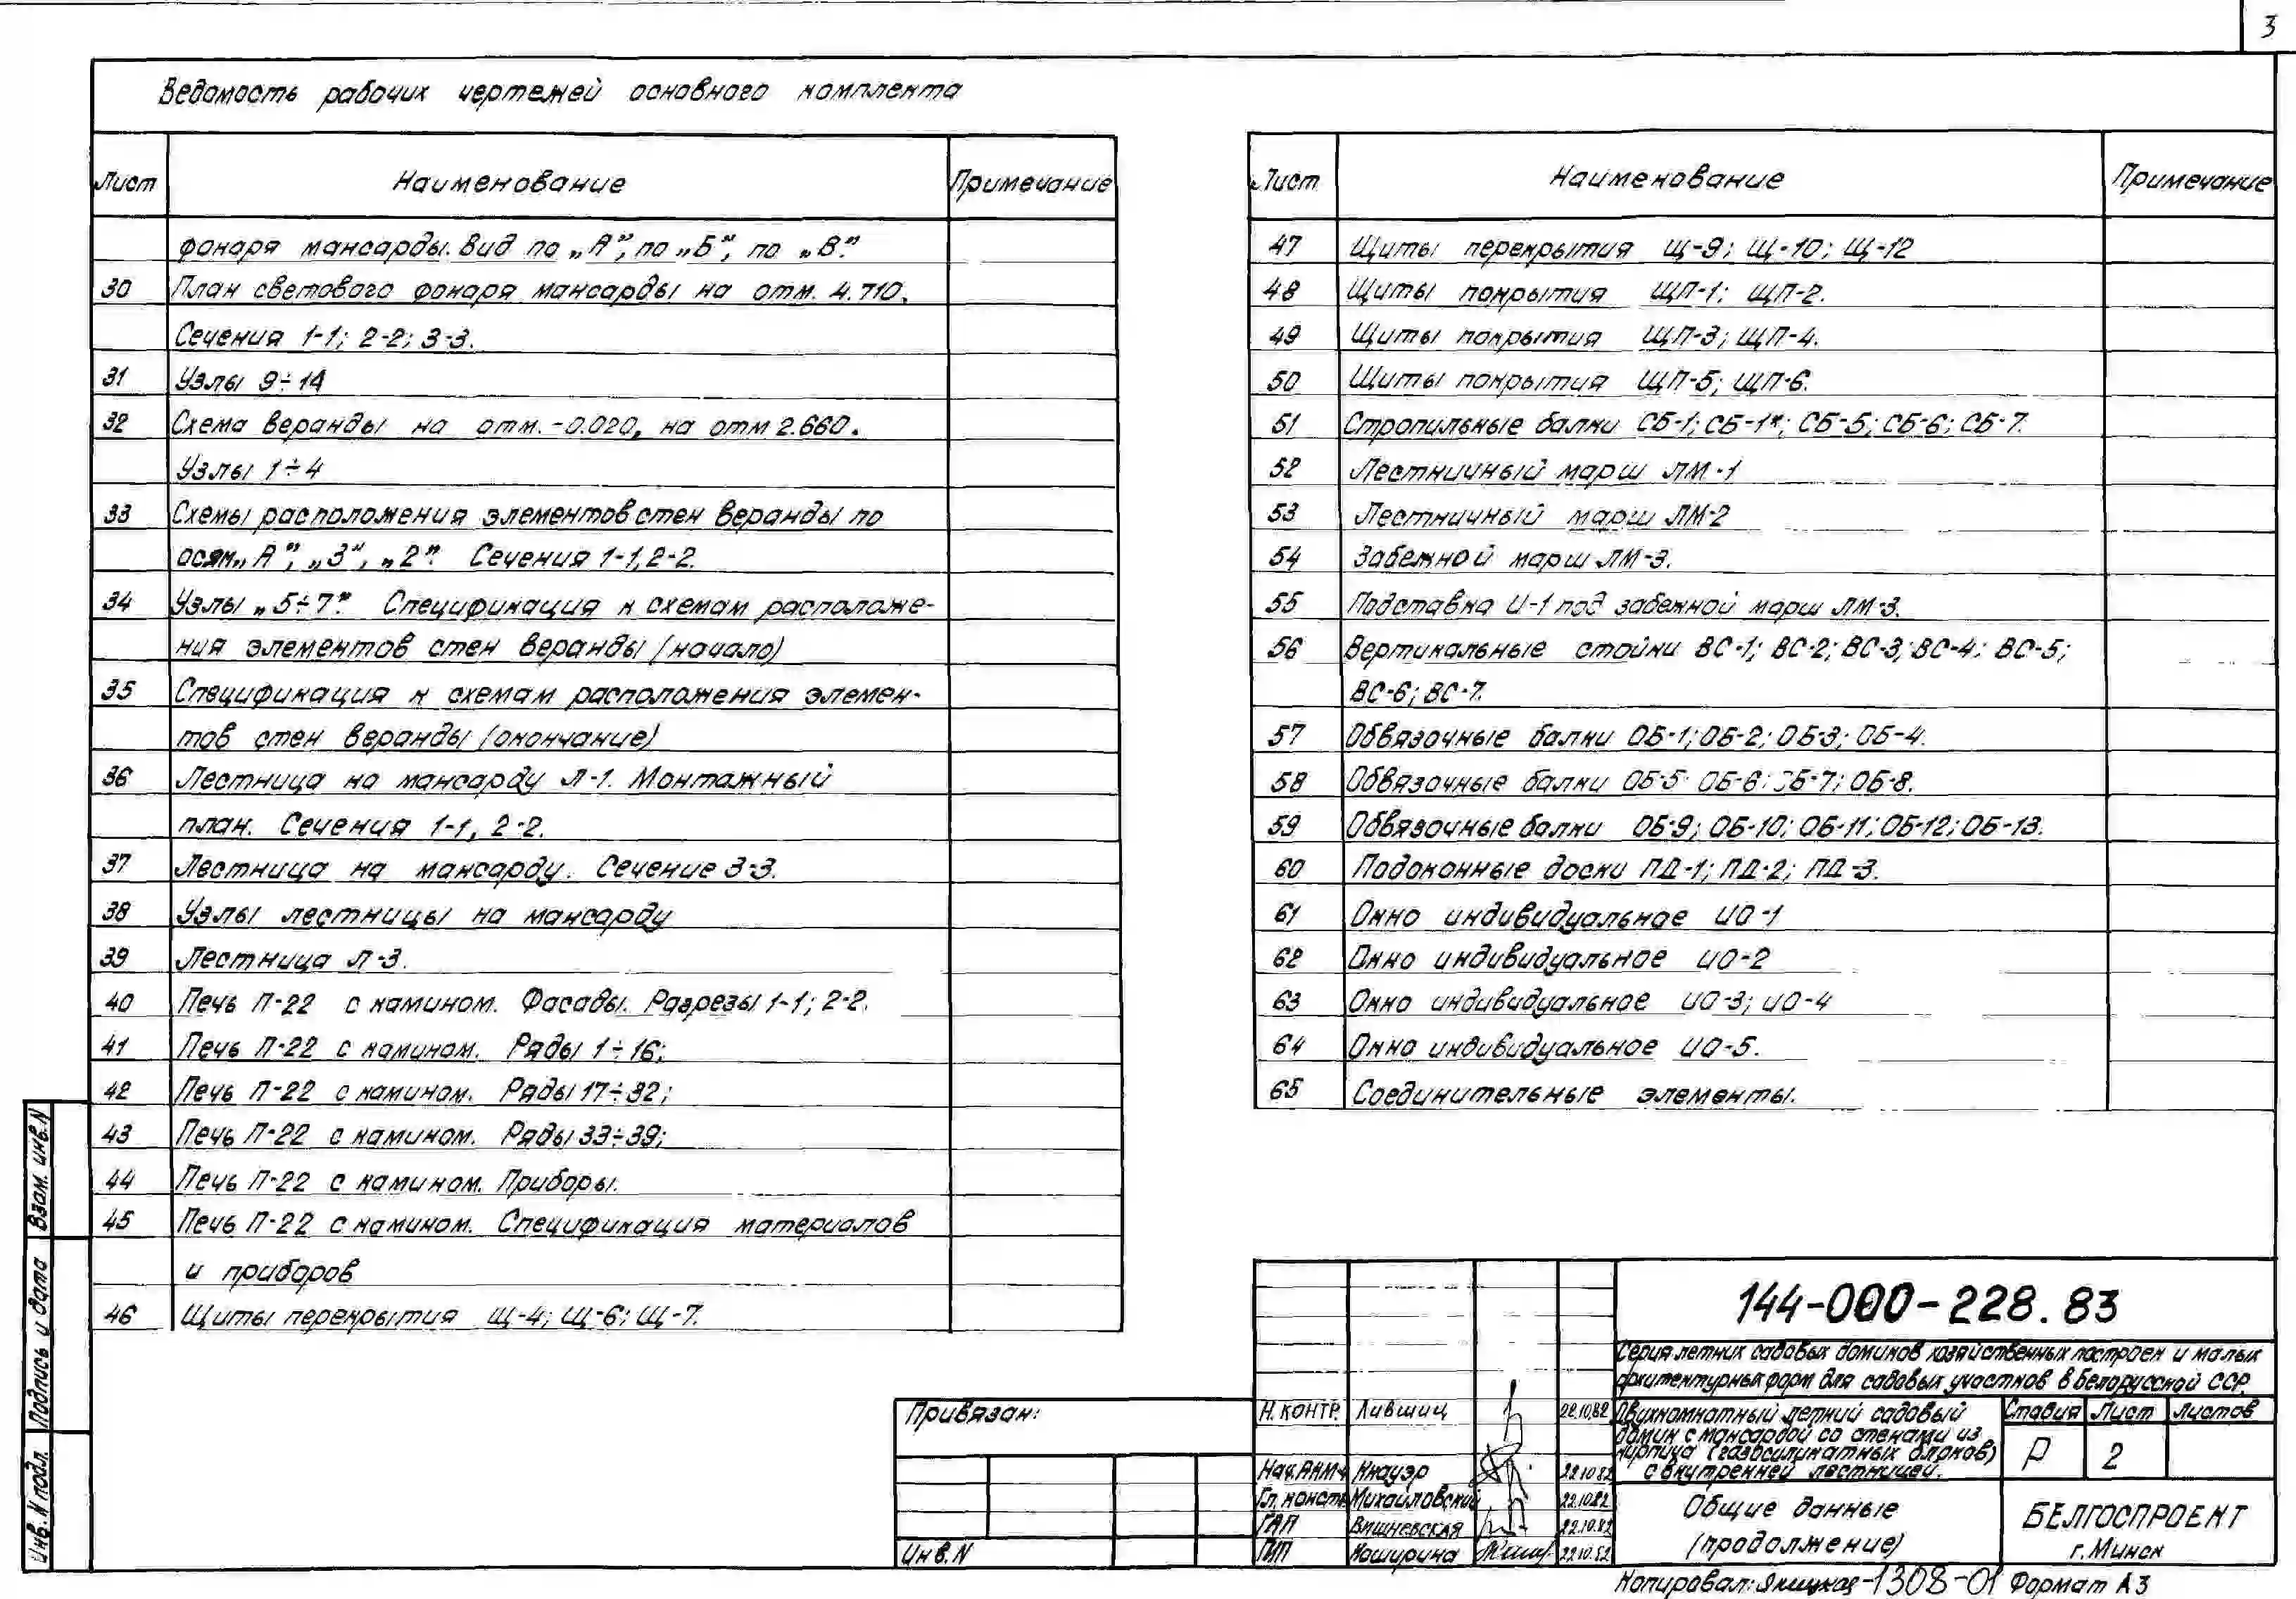 3
Ведомость рабочих чертежей основного комплекта
Лист Наименование Примечание
фонаря мансарды. Вид по „А”, по „Б”, по „В”.
30 План светового фонаря мансарды на отм. 4.710.
Сечения 1-1; 2-2; 3-3.
31 Узлы 9÷14
32 Схема веранды на отм. -0.020, на отм 2.660.
Узлы 1÷4
33 Схемы расположения элементов стен веранды по
осям „А”, „3”, „2”. Сечения 1-1, 2-2.
34 Узлы „5÷7”. Спецификация к схемам расположе-
ния элементов стен веранды (начало)
35 Спецификация к схемам расположения элемен-
тов стен веранды (окончание)
36 Лестница на мансарду Л-1. Монтажный
план. Сечения 1-1, 2-2.
37 Лестница на мансарду. Сечение 3-3.
38 Узлы лестницы на мансарду
39 Лестница Л-3.
40 Печь П-22 с камином. Фасады. Разрезы 1-1; 2-2.
41 Печь П-22 с камином. Ряды 1÷16;
42 Печь П-22 с камином. Ряды 17÷32;
43 Печь П-22 с камином. Ряды 33÷39;
44 Печь П-22 с камином. Приборы.
45 Печь П-22 с камином. Спецификация материалов
и приборов
46 Щиты перекрытия Щ-4; Щ-6; Щ-7.
Лист Наименование Примечание
47 Щиты перекрытия Щ-9; Щ-10; Щ-12
48 Щиты покрытия ЩП-1; ЩП-2.
49 Щиты покрытия ЩП-3; ЩП-4.
50 Щиты покрытия ЩП-5; ЩП-6.
51 Стропильные балки СБ-1; СБ-1*; СБ-5; СБ-6; СБ-7.
52 Лестничный марш ЛМ-1
53 Лестничный марш ЛМ-2
54 Забежной марш ЛМ-3.
55 Подставка И-1 под забежной марш ЛМ-3.
56 Вертикальные стойки ВС-1; ВС-2; ВС-3; ВС-4; ВС-5;
ВС-6; ВС-7.
57 Обвязочные балки ОБ-1; ОБ-2; ОБ-3; ОБ-4.
58 Обвязочные балки ОБ-5; ОБ-6; ОБ-7; ОБ-8.
59 Обвязочные балки ОБ-9; ОБ-10; ОБ-11; ОБ-12; ОБ-13.
60 Подоконные доски ПД-1; ПД-2; ПД-3.
61 Окно индивидуальное ИО-1
62 Окно индивидуальное ИО-2
63 Окно индивидуальное ИО-3; ИО-4
64 Окно индивидуальное ИО-5.
65 Соединительные элементы.
Взам. инв. N
Подпись и дата
Инв. N подл.
Привязан:
Инв. N
144-000-228.83
Серия летних садовых домиков хозяйственных построек и малых
архитектурных форм для садовых участков в Белорусской ССР.
Н. КОНТР. Лившиц 22.10.82
Нач. АКМ-4 Кнауэр 22.10.82
Гл. констр. Михайловский 22.10.82
ГАП Вишневская 22.10.82
ГИП Кашурина 22.10.82
Двухкомнатный летний садовый
домик с мансардой со стенами из
кирпича (газосиликатных блоков)
с внутренней лестницей.
Стадия Лист Листов
Р 2
Общие данные
(продолжение)
БЕЛГОСПРОЕКТ
г. Минск
Копировал: 1308-01 Формат А3